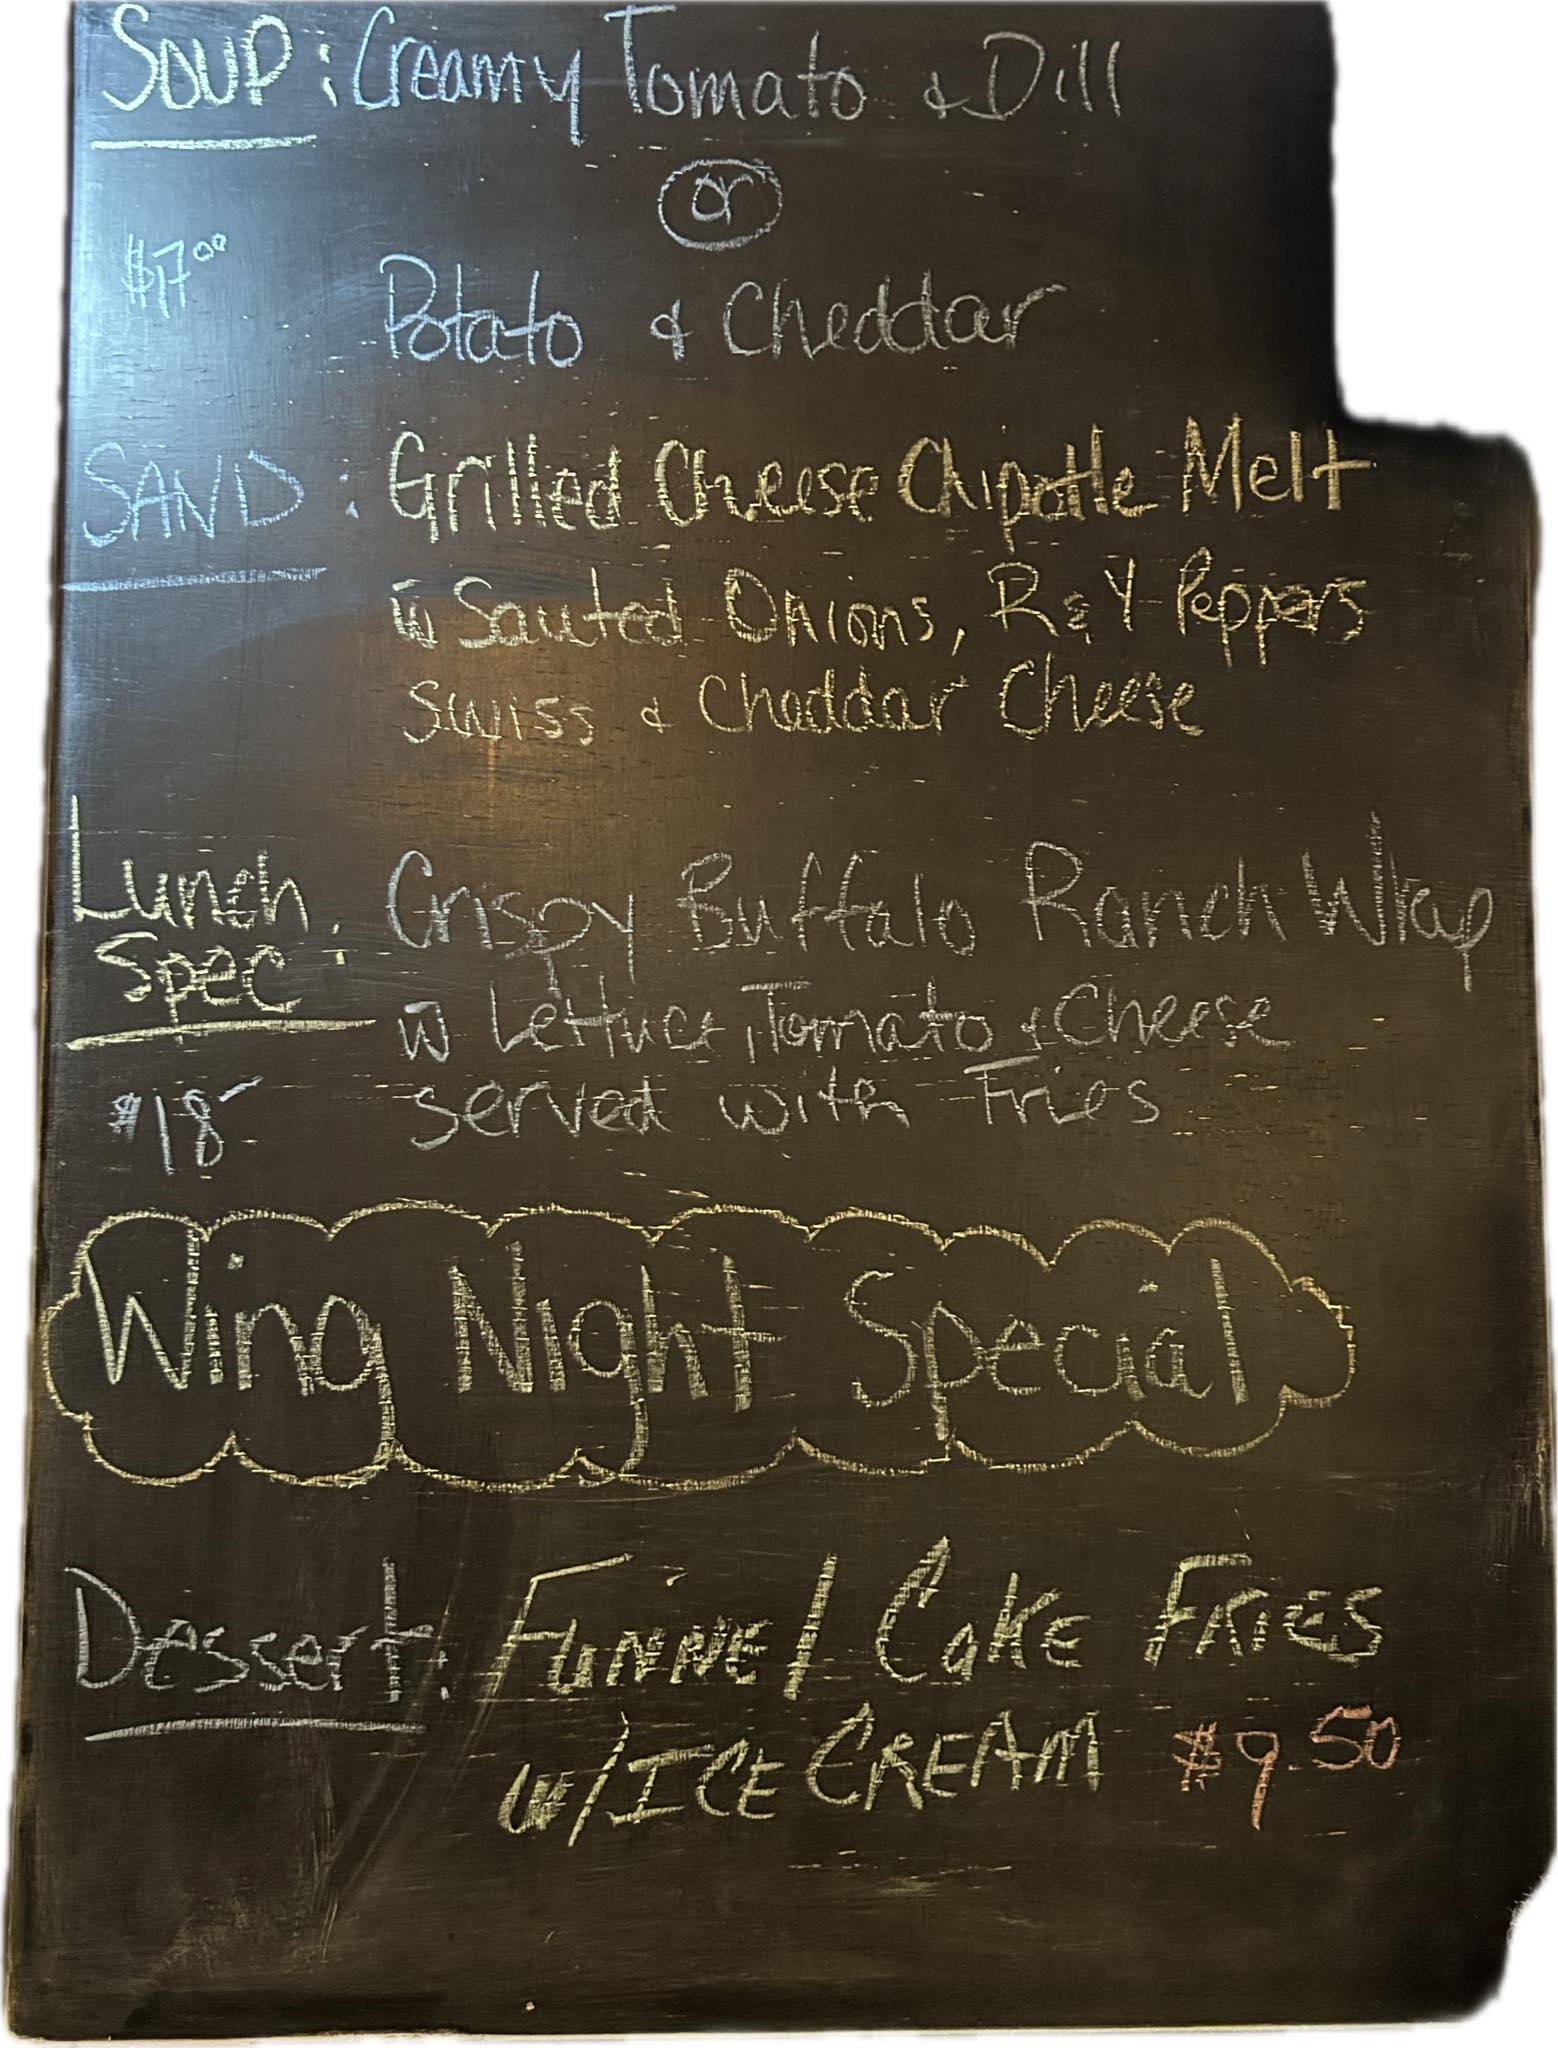 SOUP: Creamy Tomato & Dill
or
$17.00
Potato & Cheddar
SAND: Grilled Cheese Chipotle Melt
w Sauted Onions, R & Y Peppers
Swiss & Cheddar Cheese
Lunch Spec: Crispy Buffalo Ranch Wrap
w Lettuce, Tomato & Cheese
$18- served with Fries
Wing Night Special
Dessert: FUNNEl CAKE FRIES
w/ICE CREAM $9.50